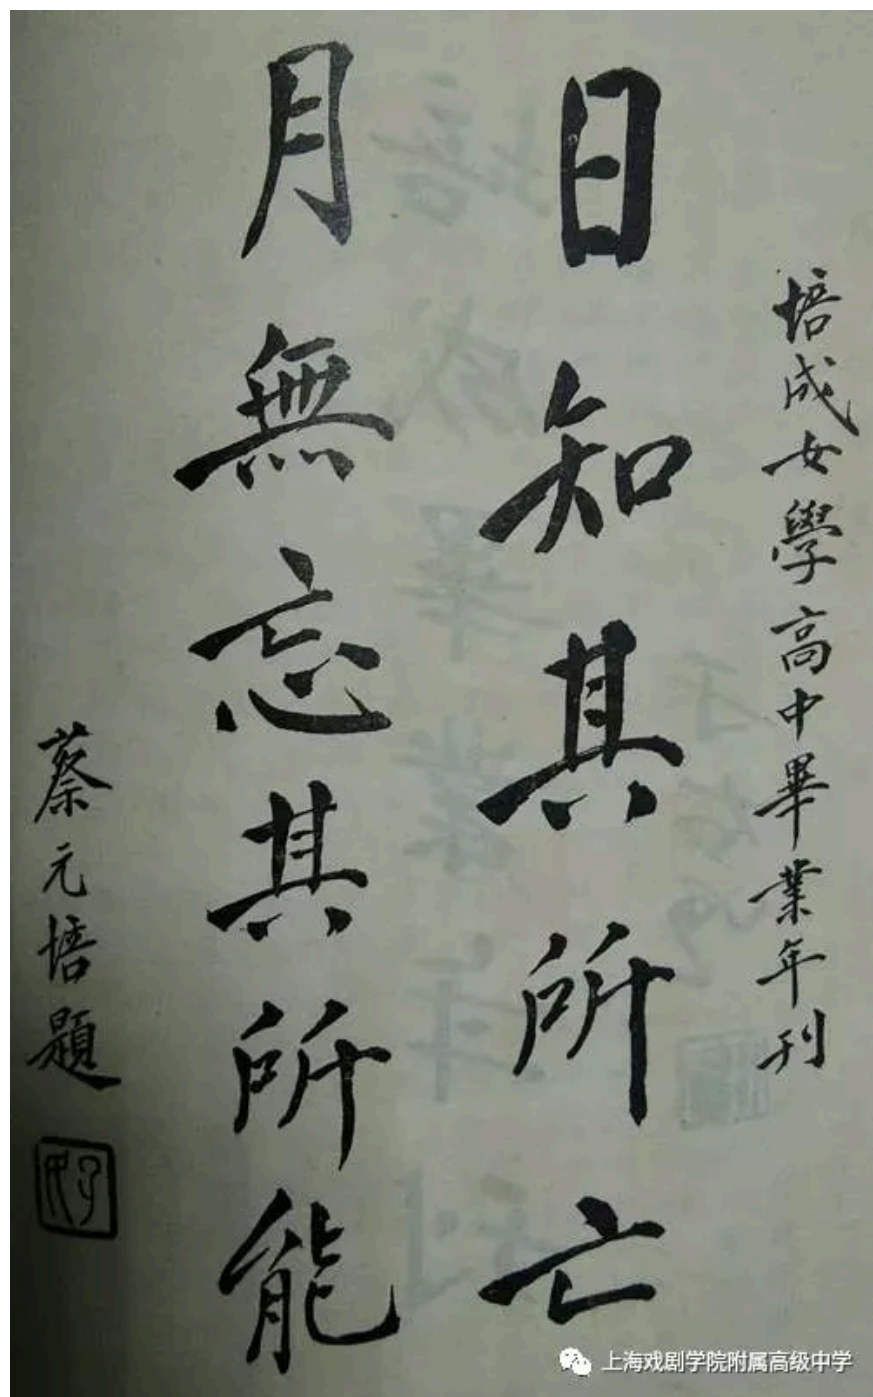 培成女學高中畢業年刊
日知其所亡
月無忘其所能
蔡元培題
上海戏剧学院附属高级中学